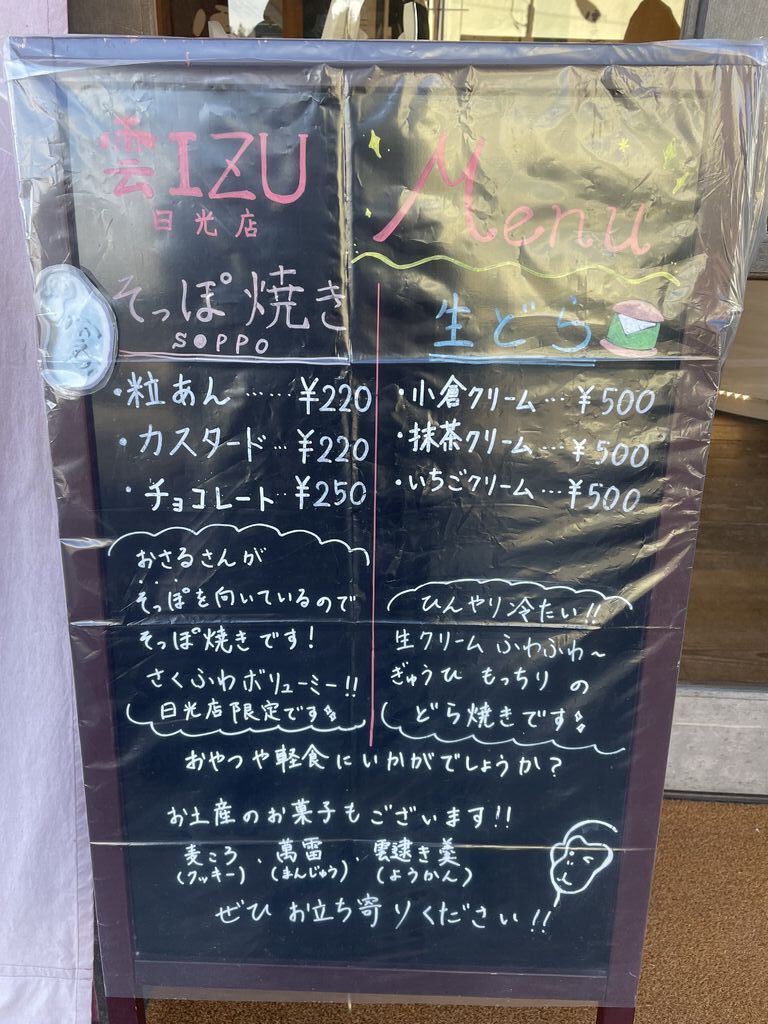 雲IZU
日光店
Menu
そっぽ焼き
SOPPO
・粒あん……¥220
・カスタード…¥220
・チョコレート…¥250
おさるさんが
そっぽを向いているので
そっぽ焼きです!
さくふわボリューミー!!
日光店限定です
生どら
・小倉クリーム…¥500
・抹茶クリーム…¥500
・いちごクリーム…¥500
ひんやり冷たい!!
生クリーム ふわふわ~
ぎゅうひ もっちり の
どら焼きです
おやつや軽食にいかがでしょうか?
お土産のお菓子もございます!!
麦ころ、萬雷、雲逮き羹
(クッキー) (まんじゅう) (ようかん)
ぜひ お立ち寄りください!!